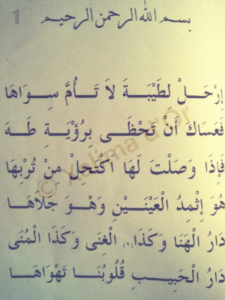 1
بسم الله الرحمن الرحيم
إِرْحَلْ لِطَيْبَةَ لَا تَأُمَّ سِوَاهَا
فَعَسَاكَ أَنْ تَحْظَى بِرُؤْيَةِ طَهَ
فَإِذَا وَصَلْتَ لَهَا اكْتَحِلْ مِنْ تُرْبِهَا
هُوَ إِثْمِدُ الْعَيْنَيْنِ وَهْوَ جَلَاهَا
دَارُ الْهَنَا وَكَذَا الْغِنَى وَكَذَا الْمُنَى
دَارُ الْحَبِيبِ قُلُوبُنَا تَهْوَاهَا